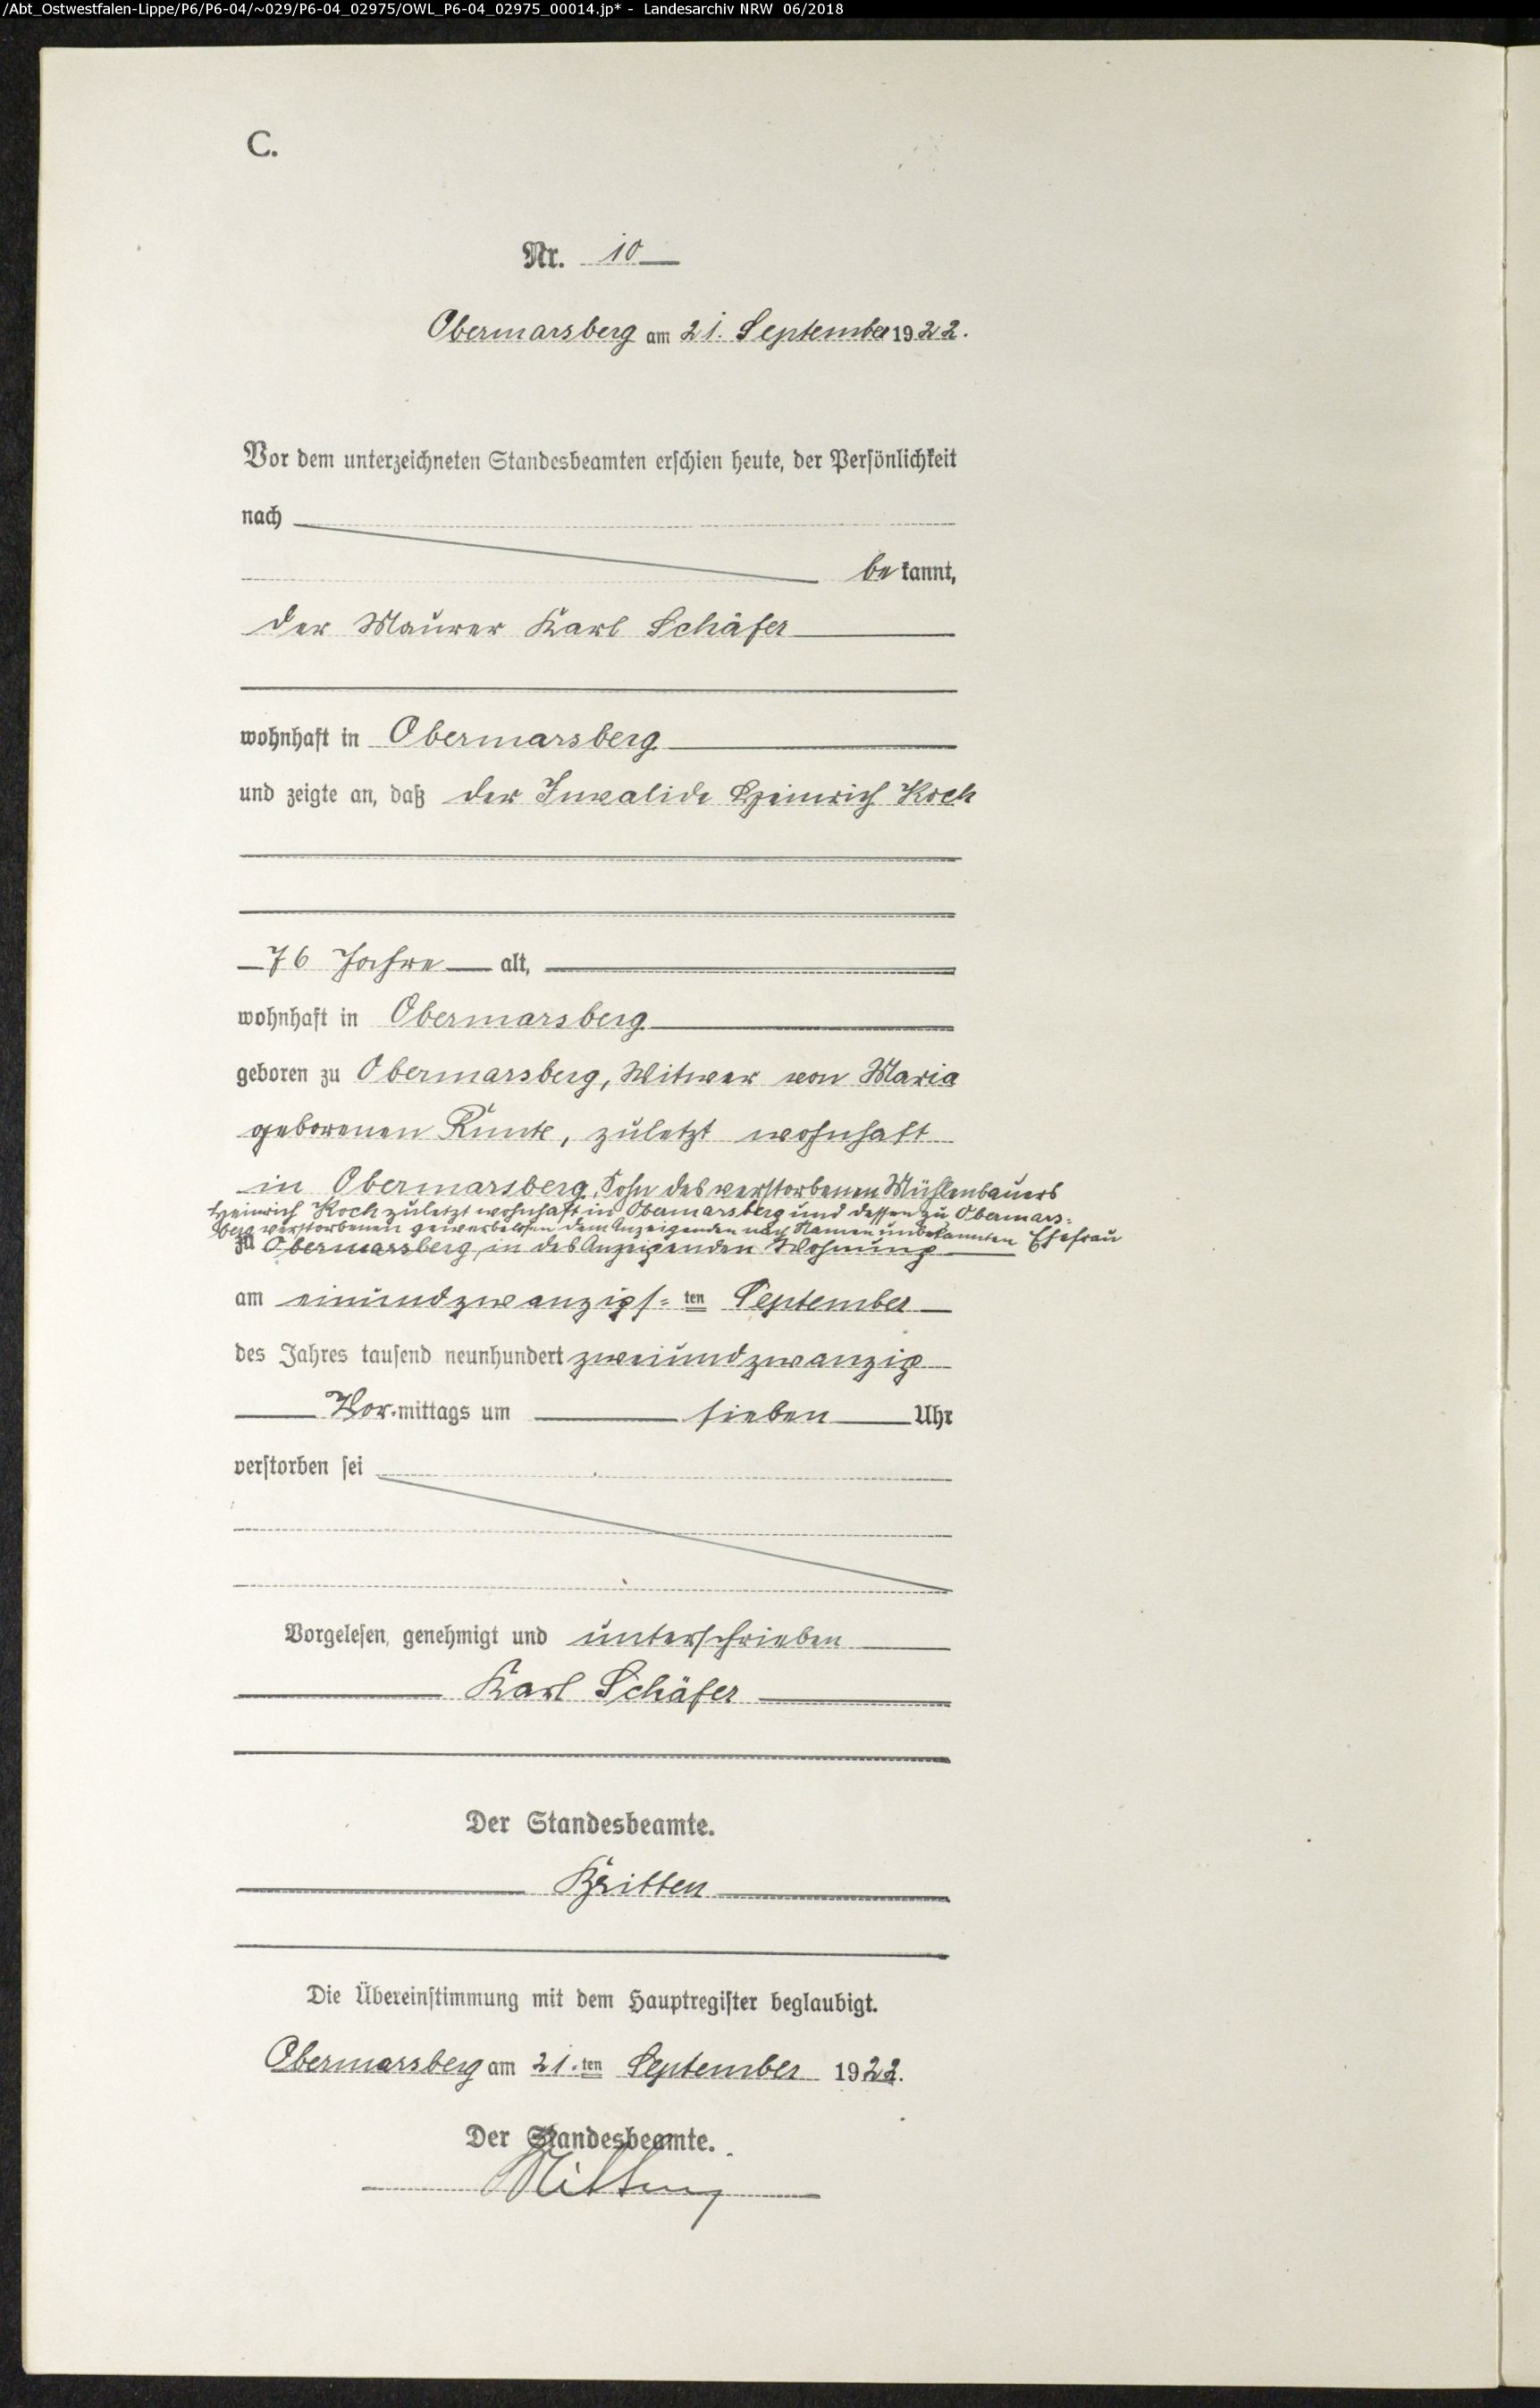 /Abt_Ostwestfalen-Lippe/P6/P6-04/~029/P6-04_02975/OWL_P6-04_02975_00014.jp* - Landesarchiv NRW 06/2018
C.
Nr. 10
Obermarsberg am 21. September 1922.
Vor dem unterzeichneten Standesbeamten erschien heute, der Persönlichkeit
nach
be kannt,
der Maurer Karl Schäfer
wohnhaft in Obermarsberg
und zeigte an, daß der Invalide Heinrich Koch
76 Jahre alt,
wohnhaft in Obermarsberg
geboren zu Obermarsberg, Witwer von Maria
geborenen Runte, zuletzt wohnhaft
in Obermarsberg, Sohn des verstorbenen Mühlenbauers
Heinrich Koch zuletzt wohnhaft in Obermarsberg und dessen zu Obermars-
berg verstorbenen gewerbelosen dem Anzeigenden nach Namen unbekannten Ehefrau
zu Obermarsberg, in des Anzeigenden Wohnung
am einundzwanzigs= ten September
des Jahres tausend neunhundert zweiundzwanzig
Vor-mittags um sieben Uhr
verstorben sei
Vorgelesen, genehmigt und unterschrieben
Karl Schäfer
Der Standesbeamte.
Die Übereinstimmung mit dem Hauptregister beglaubigt.
Obermarsberg am 21. ten September 1922.
Der Standesbeamte.